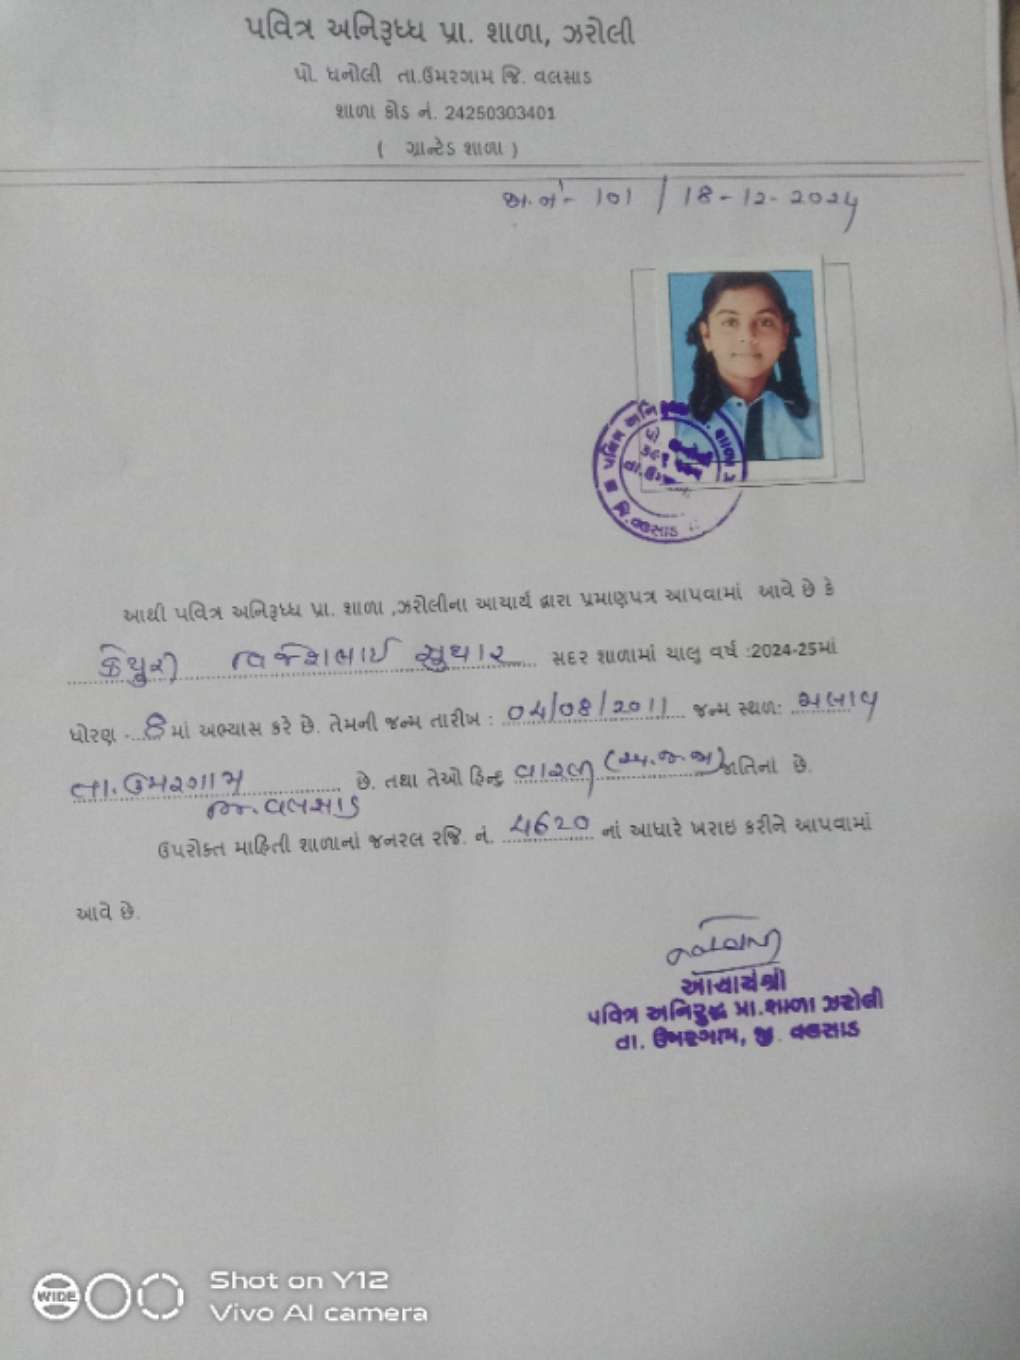 પવિત્ર અનિરૂધ્ધ પ્રા. શાળા, ઝરોલી
પો. ધનોલી તા.ઉમરગામ જિ. વલસાડ
શાળા કોડ નં. 24250303401
( ગ્રાન્ટેડ શાળા )
જા.નં- 101 / 18-12-2024
આથી પવિત્ર અનિરૂધ્ધ પ્રા. શાળા ,ઝરોલીના આચાર્ય દ્વારા પ્રમાણપત્ર આપવામાં આવે છે કે
સુથાર સદર શાળામાં ચાલુ વર્ષ :2024-25માં
ધોરણ - 8 માં અભ્યાસ કરે છે. તેમની જન્મ તારીખ : 04/08/2011 જન્મ સ્થળ:
તા.ઉમરગામ છે. તથા તેઓ હિન્દુ વારલી (અ.જ.જા) જાતિના છે.
જિ.વલસાડ
ઉપરોક્ત માહિતી શાળાનાં જનરલ રજિ. નં. 4620 નાં આધારે ખરાઇ કરીને આપવામાં
આવે છે.
આચાર્યશ્રી
પવિત્ર અનિરુદ્ધ પ્રા.શાળા ઝરોલી
તા. ઉમરગામ, જી. વલસાડ
WIDE
Shot on Y12
Vivo AI camera